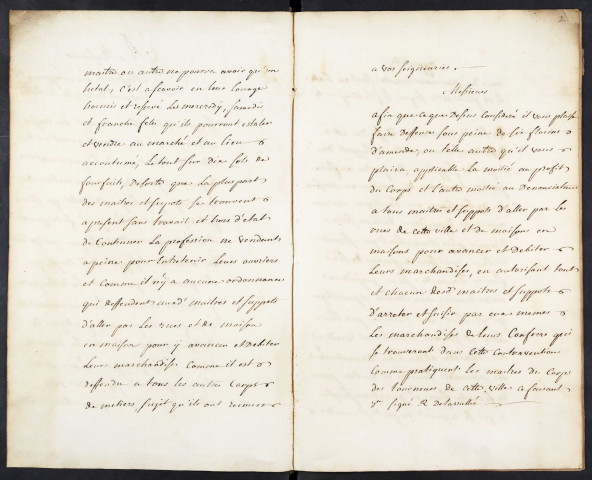 maitre ou autre ne pourra avoir qu'un
hetal, c'est a scavoir en leur louage
hormis et reservé Le mercredy, samedis
et franche feste qu'ils pourront estaler
et vendre au marché et au lieu
accoutumé, Le tout sur dix sols de
fourfait, De sorte que La plus part
des maitres et supots se trouvent
apresent sans travail et hors d'etat
de Continuer La profession ne vendants
a peine pour Entretenir Leurs ouvriers
et Comme il n'y a aucune ordonnance
qui deffendent auxd. maitres et suppots
d'aller par Les rues et de maison
en maison pour y avancer et Debiter
Leurs marchandises Comme il est
deffendu a tous les autres Corps
de metiers, sujet qu'ils ont recours
2
a vos seigneuries.
Messieurs
afin que ce que dessus Consideré il vous plaise
faire deffense sous peine de six florins
d'amende, ou telle autre qu'il vous
plaira applicable La moitié au profit
du Corps et l'autre moitié au Denonciateur
a tous maitres et suppots d'aller par les
rues de cette ville et de maisons en
maisons pour avancer et Debiter
Leurs marchandises, en autorisant tout
et chacun desd. maitres et suppots
d'arreter et saisir par eux memes
Les marchandises de leurs Confrere qui
se trouveront dans cette Contravention
Comme pratiquent les maitres du Corps
des tourneurs de cette ville a faisant
signé R Delavallée